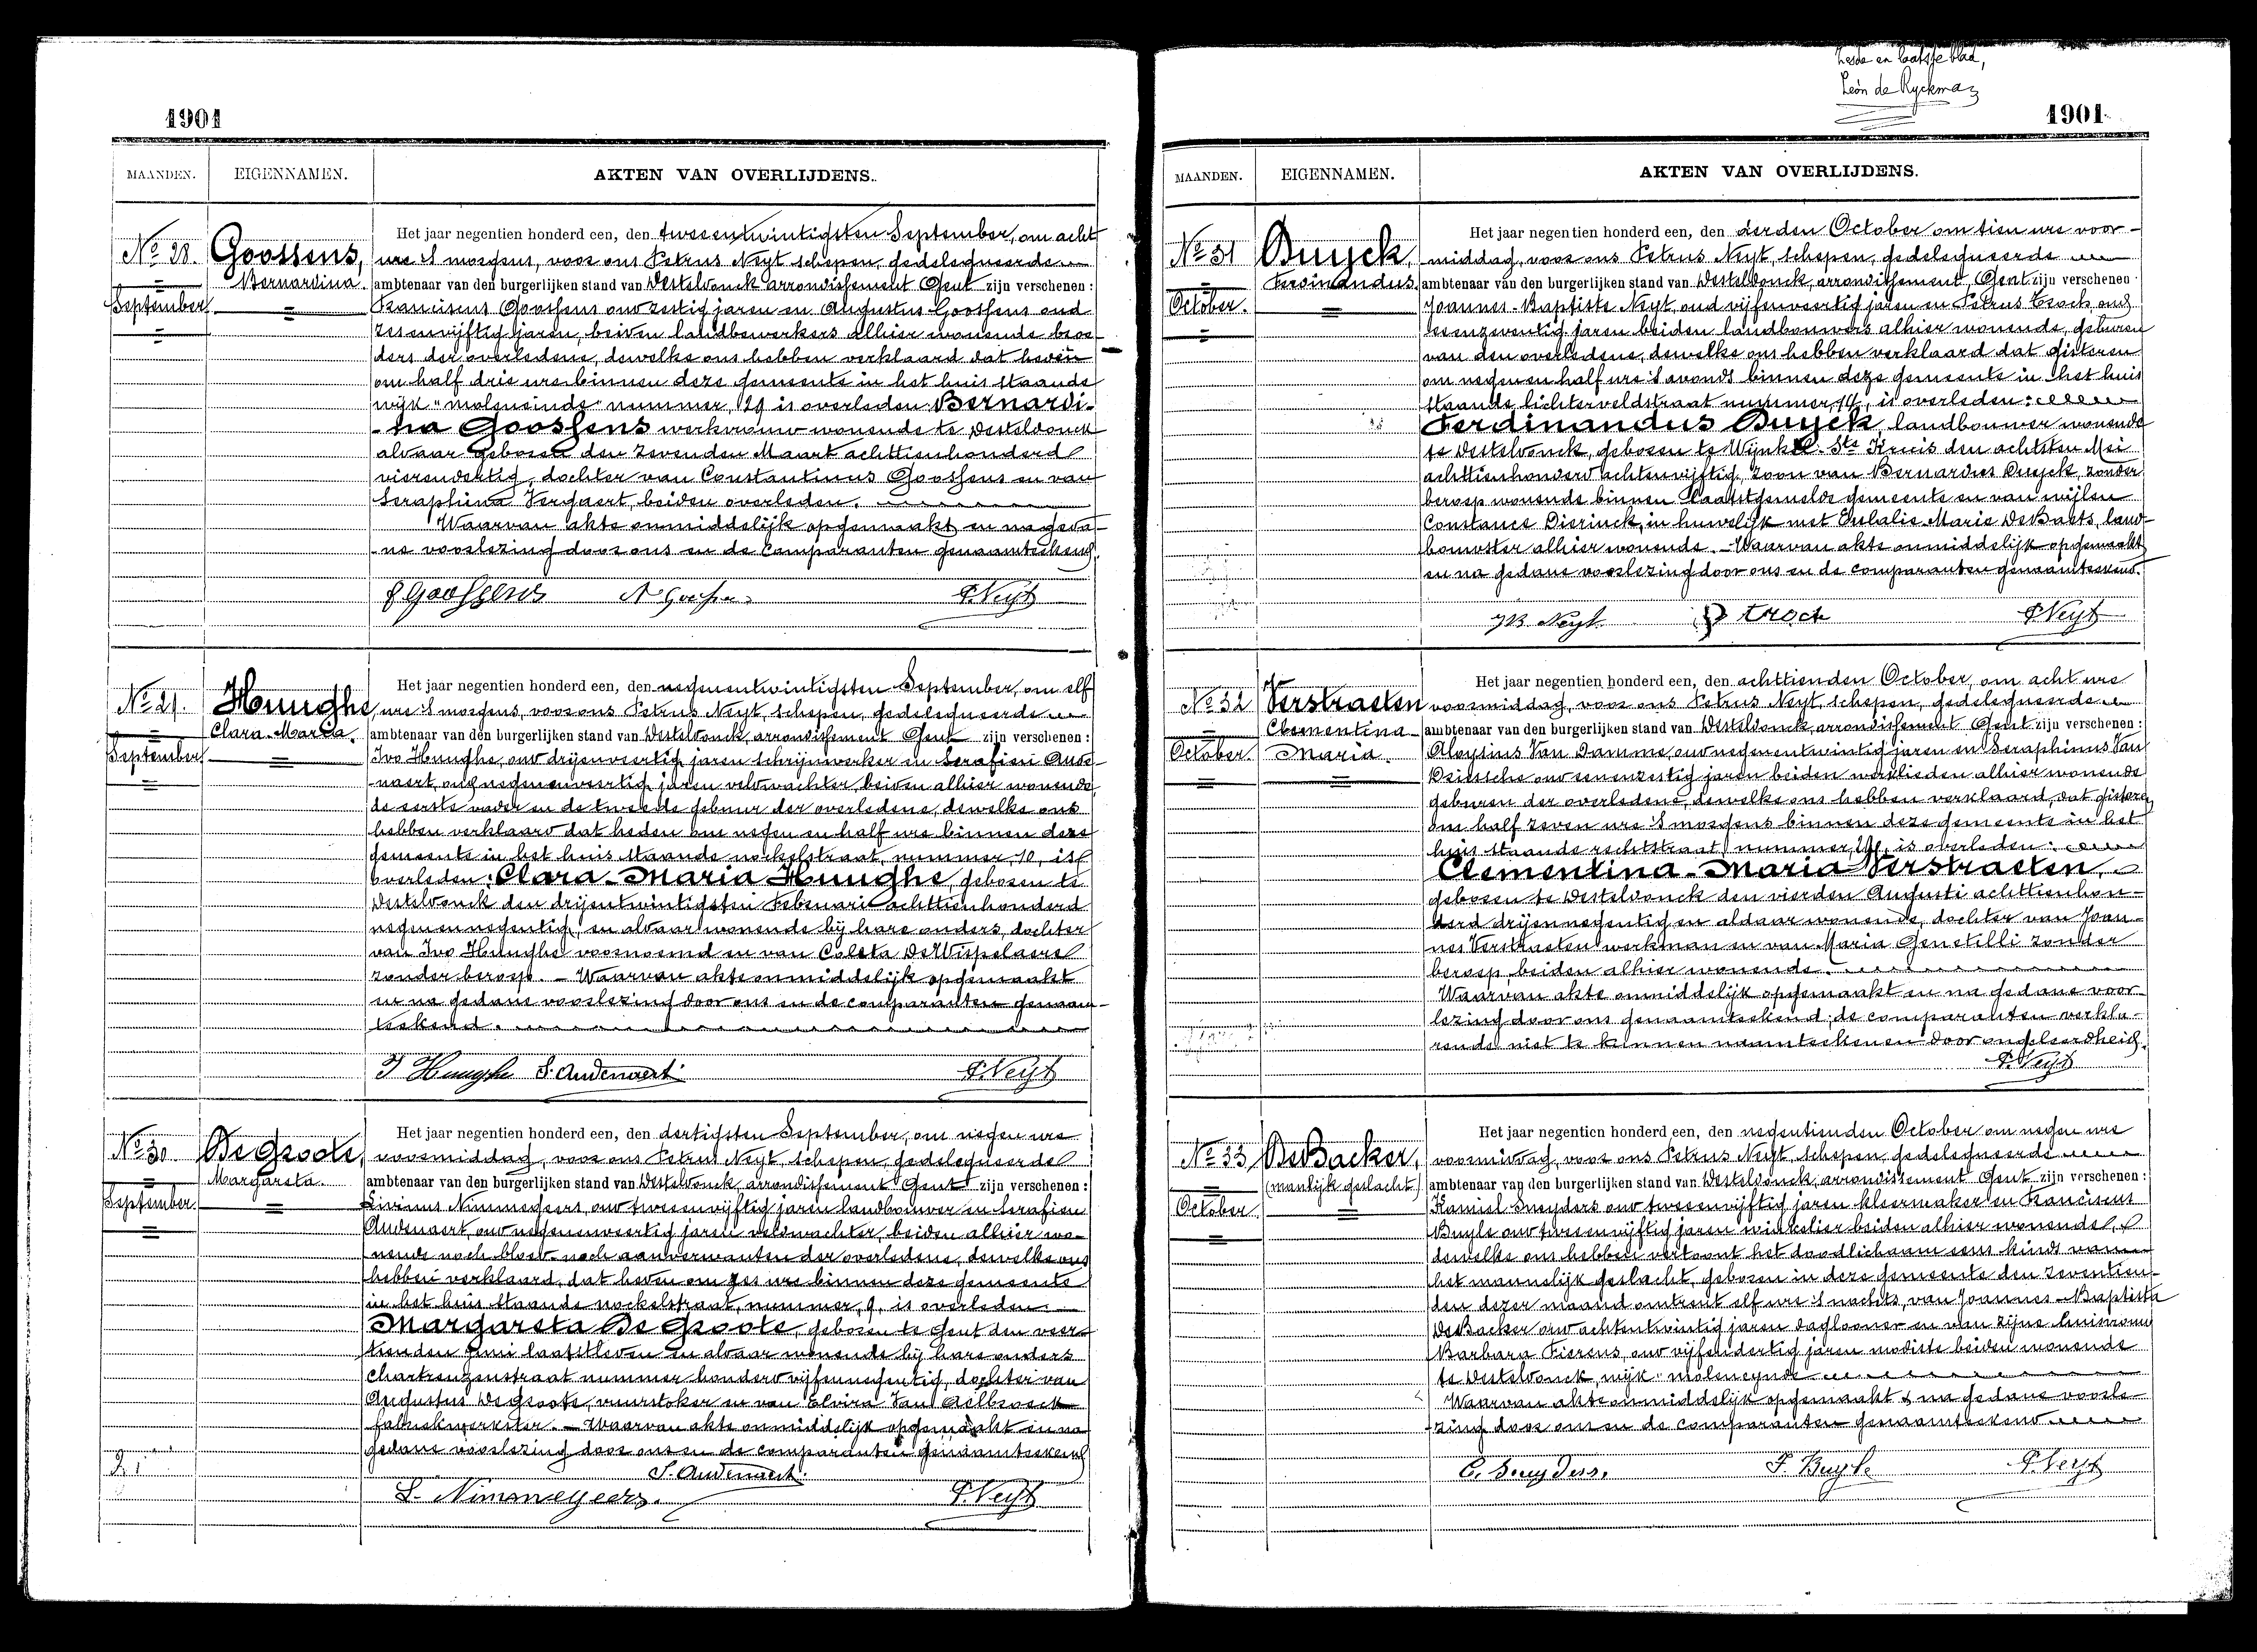 1901
MAANDEN.
EIGENNAMEN.
AKTEN VAN OVERLIJDENS.
No 28.
September
Goossens,
Bernardina.
Het jaar negentien honderd een, den tweeentwintigsten September, om acht
ure 's morgens, voor ons Petrus Neyt schepen, gedelegueerde
ambtenaar van den burgerlijken stand van Desteldonck arrondissement Gent zijn verschenen :
Franciscus Goossens oud zestig jaren en Augustus Goossens oud
zesenvijftig jaren, beiden landbewerkers alhier wonende broe-
ders der overledene, dewelke ons hebben verklaard dat heden
om half drie ure binnen deze gemeente in het huis staande
wijk "moleneinde" nummer, 29 is overleden Bernardi-
-na Goossens werkvrouw wonende te Desteldonck
aldaar geboren den zevenden Maart achttienhonderd
vierendertig, dochter van Constantinus Goossens en van
Seraphina Vergaert, beiden overleden.
Waarvan akte onmiddelijk opgemaakt en na geda-
-ne voorlezing door ons en de comparanten genaamteekend.
F Goossens A Goossens P. Neyt
No 29.
September
Hunghe,
Clara-Maria.
Het jaar negentien honderd een, den negenentwintigsten September, om elf
ure 's morgens, voor ons Petrus Neyt, schepen, gedelegueerde
ambtenaar van den burgerlijken stand van Desteldonck, arrondissement Gent zijn verschenen :
Ivo Hunghe, oud drijenveertig jaren schrijnwerker en Serafien Aude-
-naert, oud negenenveertig jaren veldwachter, beiden alhier wonende,
de eerste vader en de tweede gebuur der overledene, dewelke ons
hebben verklaard dat heden om negen en half ure binnen deze
gemeente in het huis staande nockelstraat, nummer, 10, is
overleden: Clara-Maria Hunghe, geboren te
Desteldonck den drijentwintigsten Februari achttienhonderd
negenennegentig, en aldaar wonende bij hare ouders, dochter
van Ivo Hunghe voornoemd en van Coleta DeWispelaere
zonder beroep. - Waarvan akte onmiddelijk opgemaakt
en na gedane voorlezing door ons en de comparanten genaam-
teekend.
I Hunghe S. Audenaert. P. Neyt
No 30
September.
De Groote,
Margareta
Het jaar negentien honderd een, den dertigsten September, om negen ure
voormiddag, voor ons Petrus Neyt, schepen, gedelegueerde
ambtenaar van den burgerlijken stand van Desteldonck, arrondissement Gent zijn verschenen :
Livinus Nimmegeers, oud tweeenvijftig jaren landbouwer en Serafien
Audenaert, oud negenenveertig jaren veldwachter, beiden alhier wo-
nende noch bloed- noch aanverwanten der overledene, dewelke ons
hebben verklaard, dat heden om zes ure binnen deze gemeente
in het huis staande nockelstraat, nummer, 9, is overleden
Margareta De Groote, geboren te Gent den veer-
tienden Juni laatstleden en aldaar wonende bij hare ouders
Chartreuzenstraat nummer honderd vijfennegentig, dochter van
Augustus De Groote, vuurstoker en van Elvira Van Aelbroeck
fabriekwerkster. - Waarvan akte onmiddelijk opgemaakt en na
gedane voorlezing door ons en de comparanten genaamteekend
S. Audenaert.
L. Nimmegeers. P. Neyt
Zesde en laatste blad,
Léon de Ryckman
1901
MAANDEN.
EIGENNAMEN.
AKTEN VAN OVERLIJDENS.
No 31
October.
Buyck,
Ferdinandus.
Het jaar negentien honderd een, den derden October om tien ure voor-
middag, voor ons Petrus Neyt, schepen, gedelegueerde
ambtenaar van den burgerlijken stand van Desteldonck, arrondissement, Gent zijn verschenen :
Joannes-Baptiste Neyt, oud vijfenveertig jaren en Petrus Troch, oud
zesenzeventig jaren beiden landbouwers alhier wonende, geburen
van den overledene, dewelke ons hebben verklaard dat gisteren
om negen en half ure 's avonds binnen deze gemeente in het huis
staande lichterveldstraat nummer, 14, is overleden:
Ferdinandus Buyck, landbouwer wonende
te Desteldonck, geboren te Wynkel Ste Kruis den achtsten Mei
achttienhonderd achtenvijftig, zoon van Bernardus Buyck, zonder
beroep wonende binnen laatstgemelde gemeente en van wijlen
Constance Dierinck, in huwelijk met Eulalie-Marie DeBaets, land-
bouwster alhier wonende. - Waarvan akte onmiddelijk opgemaakt
en na gedane voorlezing door ons en de comparanten genaamteekend.
JB Neyt. P troch P. Neyt
No 32
October
Verstraeten
Clementina-
Maria.
Het jaar negentien honderd een, den achttienden October, om acht ure
voormiddag, voor ons Petrus Neyt, schepen, gedelegueerde
ambtenaar van den burgerlijken stand van Desteldonck, arrondissement Gent zijn verschenen :
Aloysius Van Damme, oud negenentwintig jaren en Seraphinus Van
Driessche oud eenenzestig jaren beiden werklieden alhier wonende
geburen der overledene, dewelke ons hebben verklaard, dat gisteren
om half zeven ure 's morgens binnen deze gemeente in het
huis staande rechtstraat, nummer, is overleden:
Clementina-Maria Verstraeten,
geboren te Desteldonck den vierden Augusti achttienhon-
derd drijennegentig en aldaar wonende, dochter van Joan-
nes Verstraeten werkman en van Maria Genetelli zonder
beroep, beiden alhier wonende.
Waarvan akte onmiddelijk opgemaakt en na gedane voor-
lezing door ons genaamteekend; de comparanten verkla-
rende niet te kunnen naamteekenen door ongeleerdheid.
P. Neyt
No 33
October
DeBacker,
(manlijk geslacht)
Het jaar negentien honderd een, den negentienden October om negen ure
voormiddag, voor ons Petrus Neyt, schepen, gedelegueerde
ambtenaar van den burgerlijken stand van Desteldonck, arrondissement Gent zijn verschenen :
Kamiel Snyders oud tweeenvijftig jaren kleermaker en Franciscus
Buyle oud tweeenvijftig jaren winkelier beiden alhier wonende,
dewelke ons hebben vertoont het doodlichaam eens kinds van
het mannelijk geslacht, geboren in deze gemeente den zeventien-
den dezer maand omtrent elf ure 's nachts, van Joannes-Baptista
DeBacker oud achtentwintig jaren daglooner en van zijne huisvrouw
Barbara Fierens, oud vijfendertig jaren modiste beiden wonende
te Desteldonck, wijk "moleneynde
Waarvan akte onmiddelijk opgemaakt & na gedane voorle-
-zing door ons en de comparanten genaamteekend
C. Snuyders. F. Buyle P. Neyt